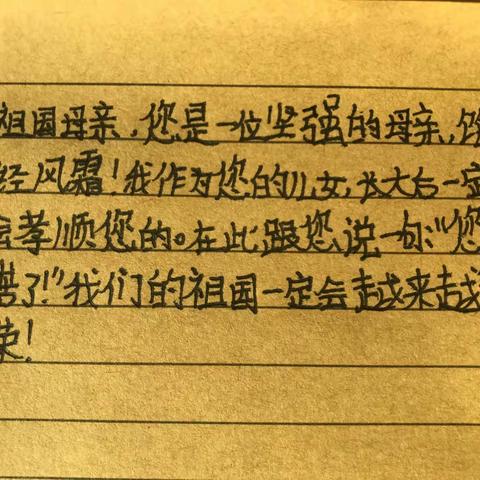 祖国母亲,您是一位坚强的母亲,饱
经风霜!我作为您的儿女,长大后一定
会孝顺您的。在此跟您说一句:“您
了!”我们的祖国一定会越来越
荣!